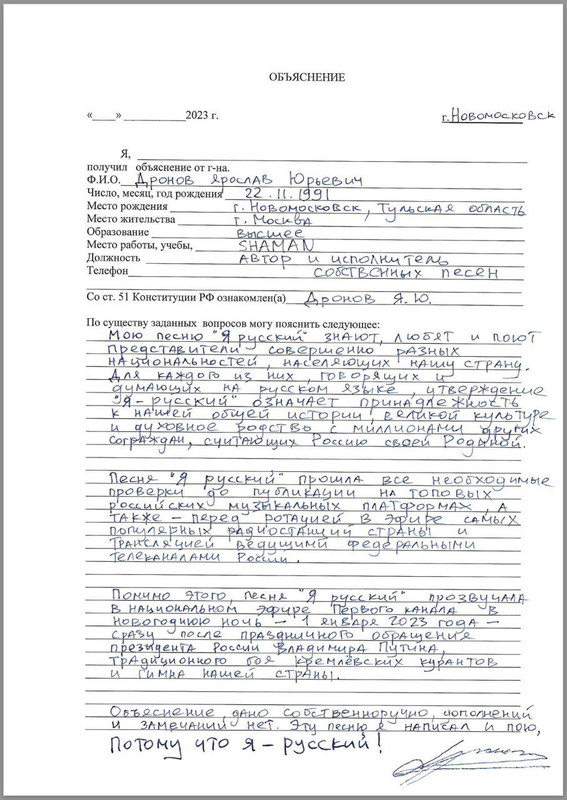 ОБЪЯСНЕНИЕ
«____» ___________2023 г. г. Новомосковск
Я, ___
получил объяснение от г-на.
Ф.И.О. Дронов Ярослав Юрьевич
Число, месяц, год рождения 22.11.1991
Место рождения г. Новомосковск, Тульская область
Место жительства г. Москва
Образование высшее
Место работы, учебы, SHAMAN
Должность автор и исполнитель
Телефон собственных песен
Со ст. 51 Конституции РФ ознакомлен(а) Дронов Я. Ю.
По существу заданных вопросов могу пояснить следующее:
Мою песню "Я русский" знают, любят и поют
представители совершенно разных
национальностей, населяющих нашу страну.
Для каждого из них, говорящих и
думающих на русском языке, утверждение
"Я - русский" означает принадлежность
к нашей общей истории, великой культуре
и духовное родство с миллионами других
сограждан, считающих Россию своей Родиной.
Песня "Я русский" прошла все необходимые
проверки до публикации на топовых
российских музыкальных платформах, а
также – перед ротацией в эфире самых
популярных радиостанций страны и
трансляцией ведущими федеральными
телеканалами России.
Помимо этого, песня "Я русский" прозвучала
в национальном эфире Первого канала в
новогоднюю ночь – 1 января 2023 года –
сразу после праздничного обращения
президента России Владимира Путина,
традиционного боя кремлёвских курантов
и гимна нашей страны.
Объяснение дано собственноручно, дополнений
и замечаний нет. Эту песню я написал и пою,
потому что я – русский!